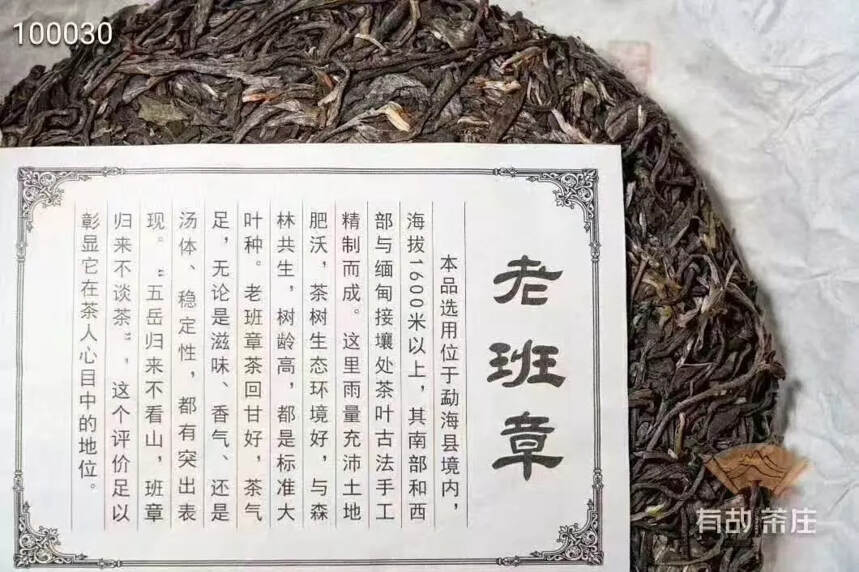 100030
老班章
本品选用位于勐海县境内，
海拔1600米以上，其南部和西
部与缅甸接壤处茶叶古法手工
精制而成。这里雨量充沛土地
肥沃，茶树生态环境好，与森
林共生，树龄高，都是标准大
叶种。老班章茶回甘好，茶气
足，无论是滋味、香气、还是
汤体、稳定性，都有突出表
现。“五岳归来不看山，班章
归来不谈茶”，这个评价足以
彰显它在茶人心目中的地位。
有故 茶庄